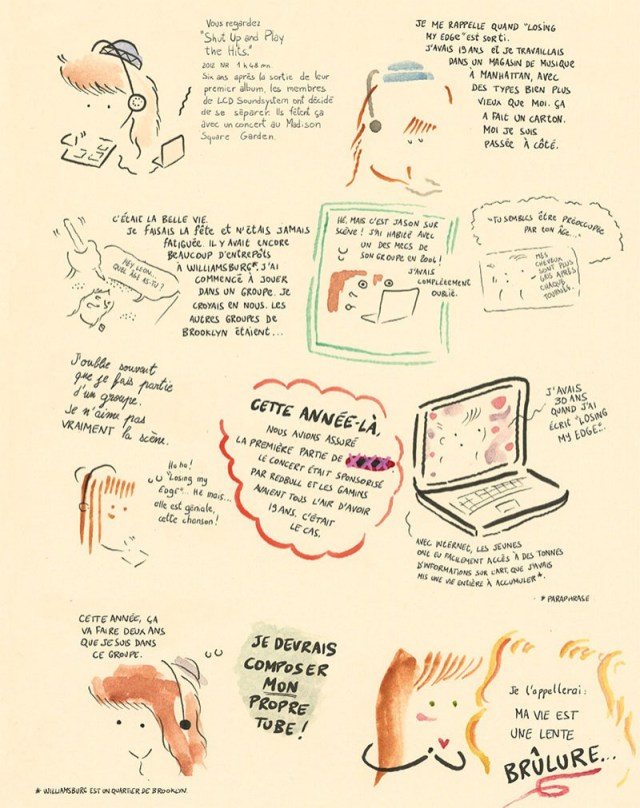 Vous regardez
"Shut Up and Play
the Hits."
2012 NR 1 h 48 mn.
Six ans après la sortie de leur
premier album, les membres
de LCD Soundsystem ont décidé
de se séparer. Ils fêtent ça
avec un concert au Madison
Square Garden.
JE ME RAPPELLE QUAND "LOSING
MY EDGE" EST SORTI.
J'AVAIS 19 ANS ET JE TRAVAILLAIS
DANS UN MAGASIN DE MUSIQUE
À MANHATTAN, AVEC
DES TYPES BIEN PLUS
VIEUX QUE MOI. ÇA
A FAIT UN CARTON.
MOI JE SUIS
PASSÉE À CÔTÉ.
C'ÉTAIT LA BELLE VIE.
JE FAISAIS LA FÊTE ET N'ÉTAIS JAMAIS
FATIGUÉE. IL Y AVAIT ENCORE
BEAUCOUP D'ENTREPÔTS
À WILLIAMSBURG*. J'AI
COMMENCÉ À JOUER
DANS UN GROUPE. JE
CROYAIS EN NOUS. LES
AUTRES GROUPES DE
BROOKLYN ÉTAIENT...
HEY LEON...
QUEL ÂGE AS-TU?
HÉ, MAIS C'EST JASON SUR
SCÈNE! J'AI HABITÉ AVEC
UN DES MECS DE
SON GROUPE EN 2001!
J'AVAIS
COMPLÈTEMENT
OUBLIÉ.
"TU SEMBLES ÊTRE PRÉOCCUPÉ
PAR TON ÂGE..."
MES
CHEVEUX
SONT PLUS
GRIS APRÈS
CHAQUE
TOURNÉE.
J'oublie souvent
que je fais partie
d'un groupe.
Je n'aime pas
VRAIMENT la scène.
Ha ha!
"Losing my
Edge"... Hé mais...
elle est géniale,
cette chanson!
CETTE ANNÉE-LÀ,
NOUS AVIONS ASSURÉ
LA PREMIÈRE PARTIE DE
LE CONCERT ÉTAIT SPONSORISÉ
PAR REDBULL ET LES GAMINS
AVAIENT TOUS L'AIR D'AVOIR
19 ANS. C'ÉTAIT
LE CAS.
J'AVAIS
30 ANS
QUAND J'AI
ÉCRIT "LOSING
MY EDGE"...
AVEC INTERNET, LES JEUNES
ONT EU FACILEMENT ACCÈS À DES TONNES
D'INFORMATIONS SUR L'ART, QUE J'AVAIS
MIS UNE VIE ENTIÈRE À ACCUMULER*.
* PARAPHRASE
CETTE ANNÉE, ÇA
VA FAIRE DEUX ANS
QUE JE SUIS DANS
CE GROUPE.
JE DEVRAIS
COMPOSER
MON
PROPRE
TUBE!
Je l'appellerai:
MA VIE EST
UNE LENTE
BRÛLURE...
* WILLIAMSBURG EST UN QUARTIER DE BROOKLYN.